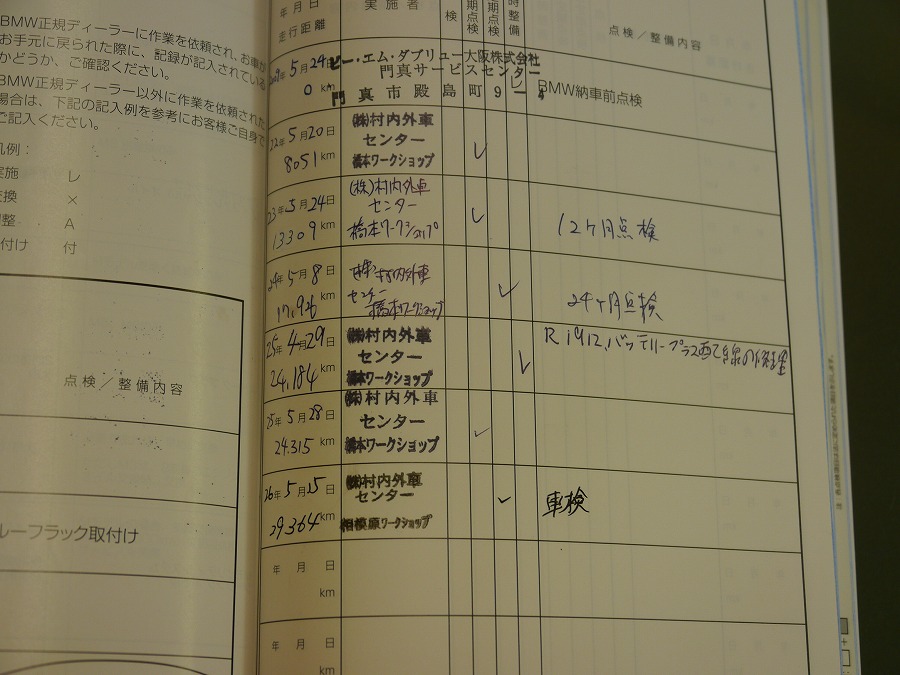 BMW正規ディーラーに作業を依頼され、お車が
お手元に戻られた際に、記録が記入されている
かどうか、ご確認ください。
BMW正規ディーラー以外に作業を依頼された
場合は、下記の記入例を参考にお客様ご自身で
ご記入ください。
凡例：
実施 レ
交換 ×
調整 A
取付け 付
点検／整備内容
ルーフラック取付け
年月日
走行距離
実施者
検
期点検
期点検
時整備
点検／整備内容
年5月29日
0 km
ビー・エム・ダブリュー大阪株式会社
門真サービスセンター
門真市殿島町9－4
レ
BMW納車前点検
22年5月20日
8051 km
(株)村内外車
センター
橋本ワークショップ
レ
23年5月24日
13309 km
(株)村内外車
センター
橋本ワークショップ
レ
12ヶ月点検
24年5月8日
17,926 km
(株)村内外車
センター
橋本ワークショップ
レ
24ヶ月点検
25年4月29日
24,184 km
(株)村内外車
センター
橋本ワークショップ
レ
バッテリープラス
25年5月28日
24,315 km
(株)村内外車
センター
橋本ワークショップ
レ
26年5月15日
29,364 km
(株)村内外車
センター
相模原ワークショップ
レ
車検
年 月 日
km
年 月 日
km